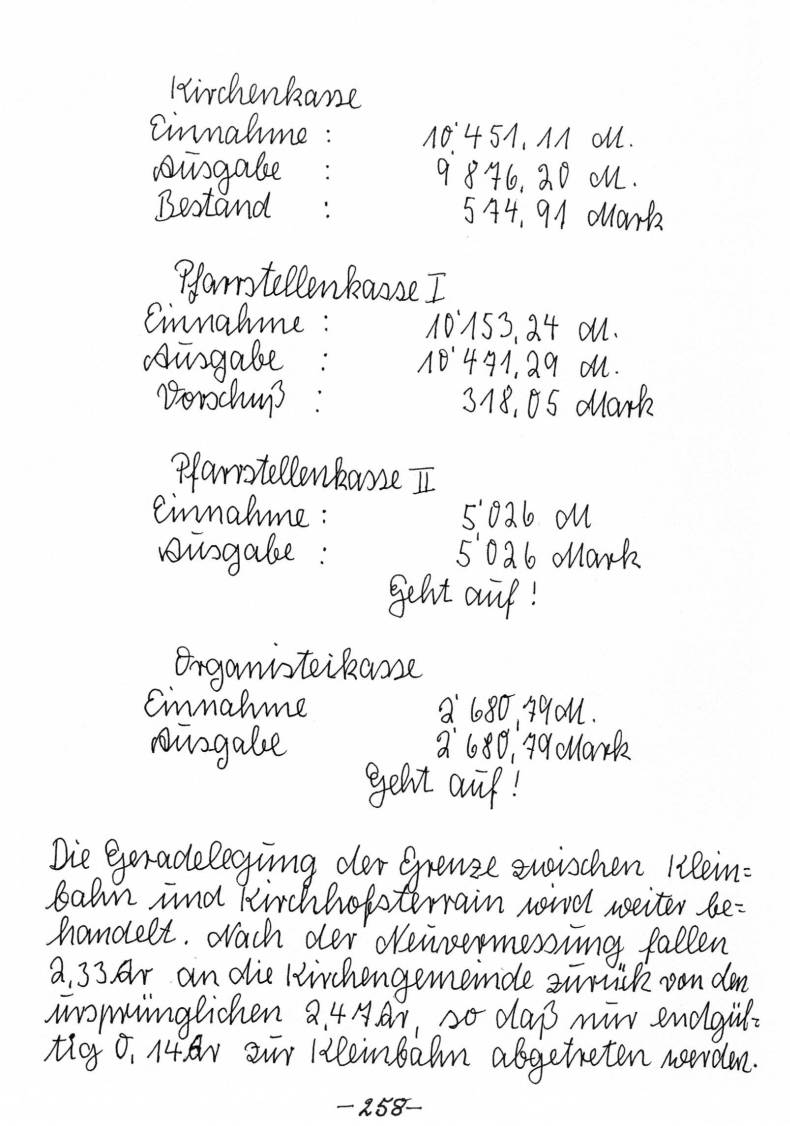 Kirchenkasse
Einnahme : 10'451,11 M.
Ausgabe : 9'876,20 M.
Bestand : 574,91 Mark
Pfarrstellenkasse I
Einnahme : 10'153,24 M.
Ausgabe : 10'471,29 M.
Vorschuß : 318,05 Mark
Pfarrstellenkasse II
Einnahme : 5'026 M
Ausgabe : 5'026 Mark
Geht auf !
Organisteikasse
Einnahme 2'680,79 M.
Ausgabe 2'680,79 Mark
Geht auf !
Die Geradelegung der Grenze zwischen Klein=
bahn und Kirchhofsterrain wird weiter be=
handelt. Nach der Neuvermessung fallen
2,33 Ar an die Kirchengemeinde zurück von den
ursprünglichen 2,47 Ar, so daß nur endgül=
tig 0,14 Ar zur Kleinbahn abgetreten werden.
-258-